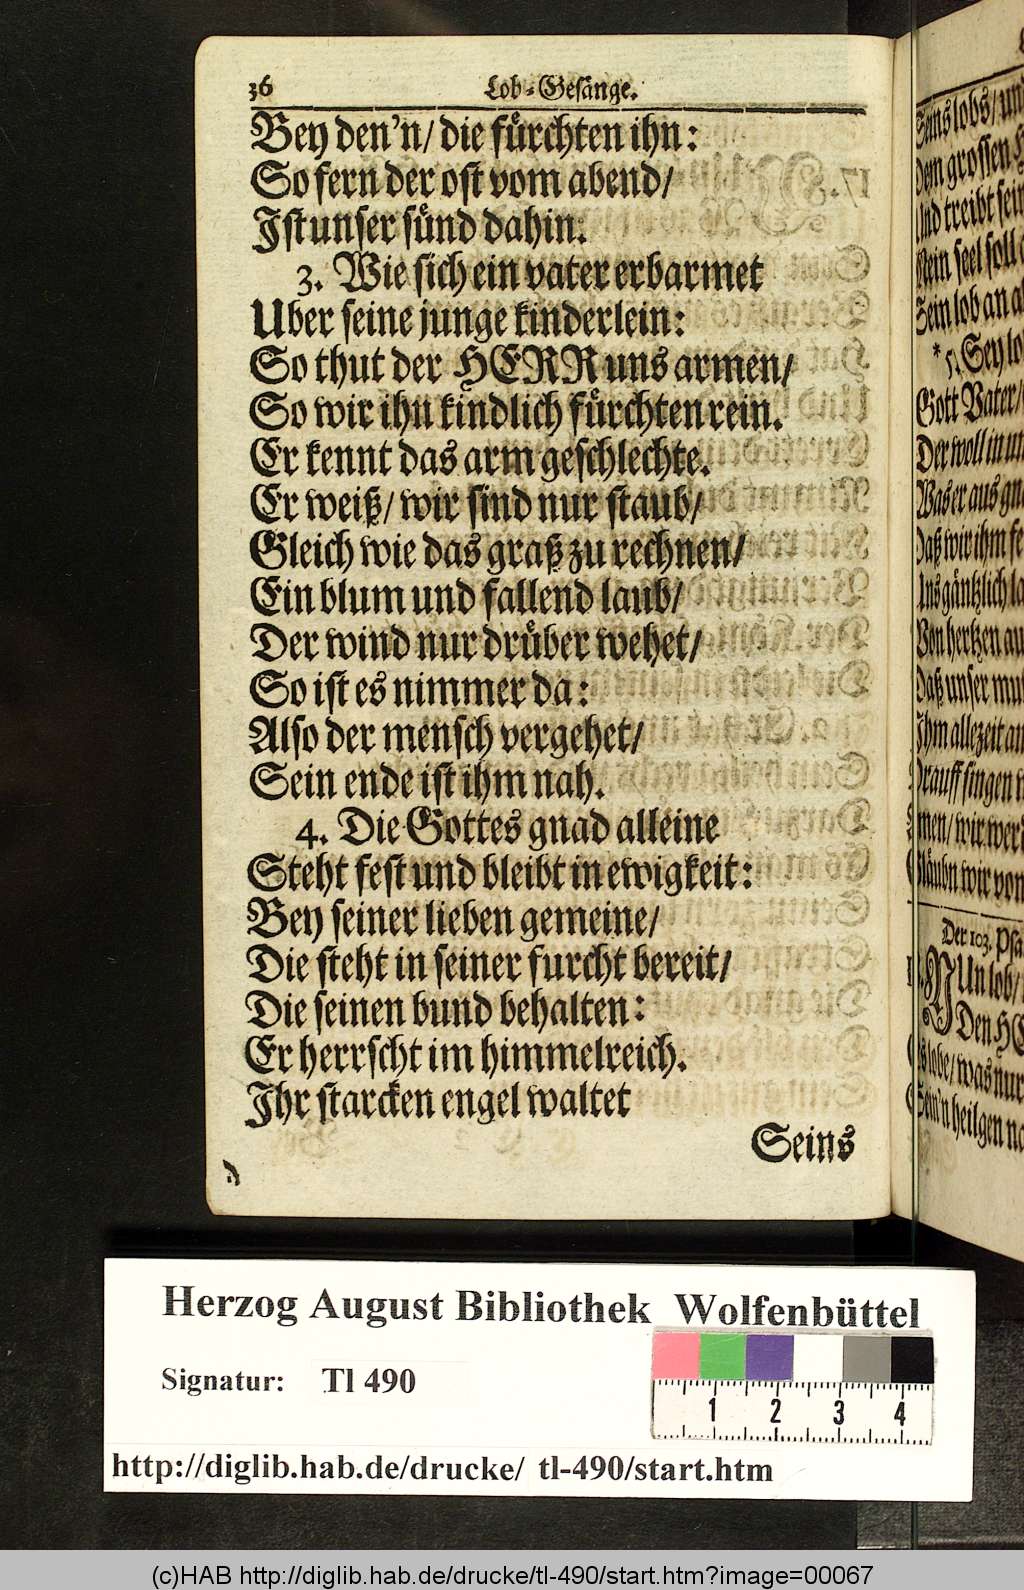 36 Lob-Gesänge.
Bey den'n/ die fürchten ihn:
So fern der ost vom abend/
Ist unser sünd dahin.
3. Wie sich ein vater erbarmet
Uber seine junge kinderlein:
So thut der HERR uns armen/
So wir ihn kindlich fürchten rein.
Er kennt das arm geschlechte.
Er weiß/ wir sind nur staub/
Gleich wie das graß zu rechnen/
Ein blum und fallend laub/
Der wind nur drüber wehet/
So ist es nimmer da:
Also der mensch vergehet/
Sein ende ist ihm nah.
4. Die Gottes gnad alleine
Steht fest und bleibt in ewigkeit:
Bey seiner lieben gemeine/
Die steht in seiner furcht bereit/
Die seinen bund behalten:
Er herrscht im himmelreich.
Ihr starcken engel waltet
Seins
Seins lobs/ und
Dem grossen
Und treibt sein
Mein seel soll
Sein lob an
* 5. Sey lo
Gott Vater/
Der woll in un
Was er aus gna
Daß wir ihm fe
Uns gäntzlich la
Von hertzen au
Daß unser mu
Ihm allezeit an
Drauff singen
men/ wir wer
gläubn wir von
Der 103. Psa
NUn lob/
Den HE
lobe/ was nur
Sein'n heilgen na
Herzog August Bibliothek Wolfenbüttel
Signatur: Tl 490
1 2 3 4
http://diglib.hab.de/drucke/ tl-490/start.htm
(c)HAB http://diglib.hab.de/drucke/tl-490/start.htm?image=00067